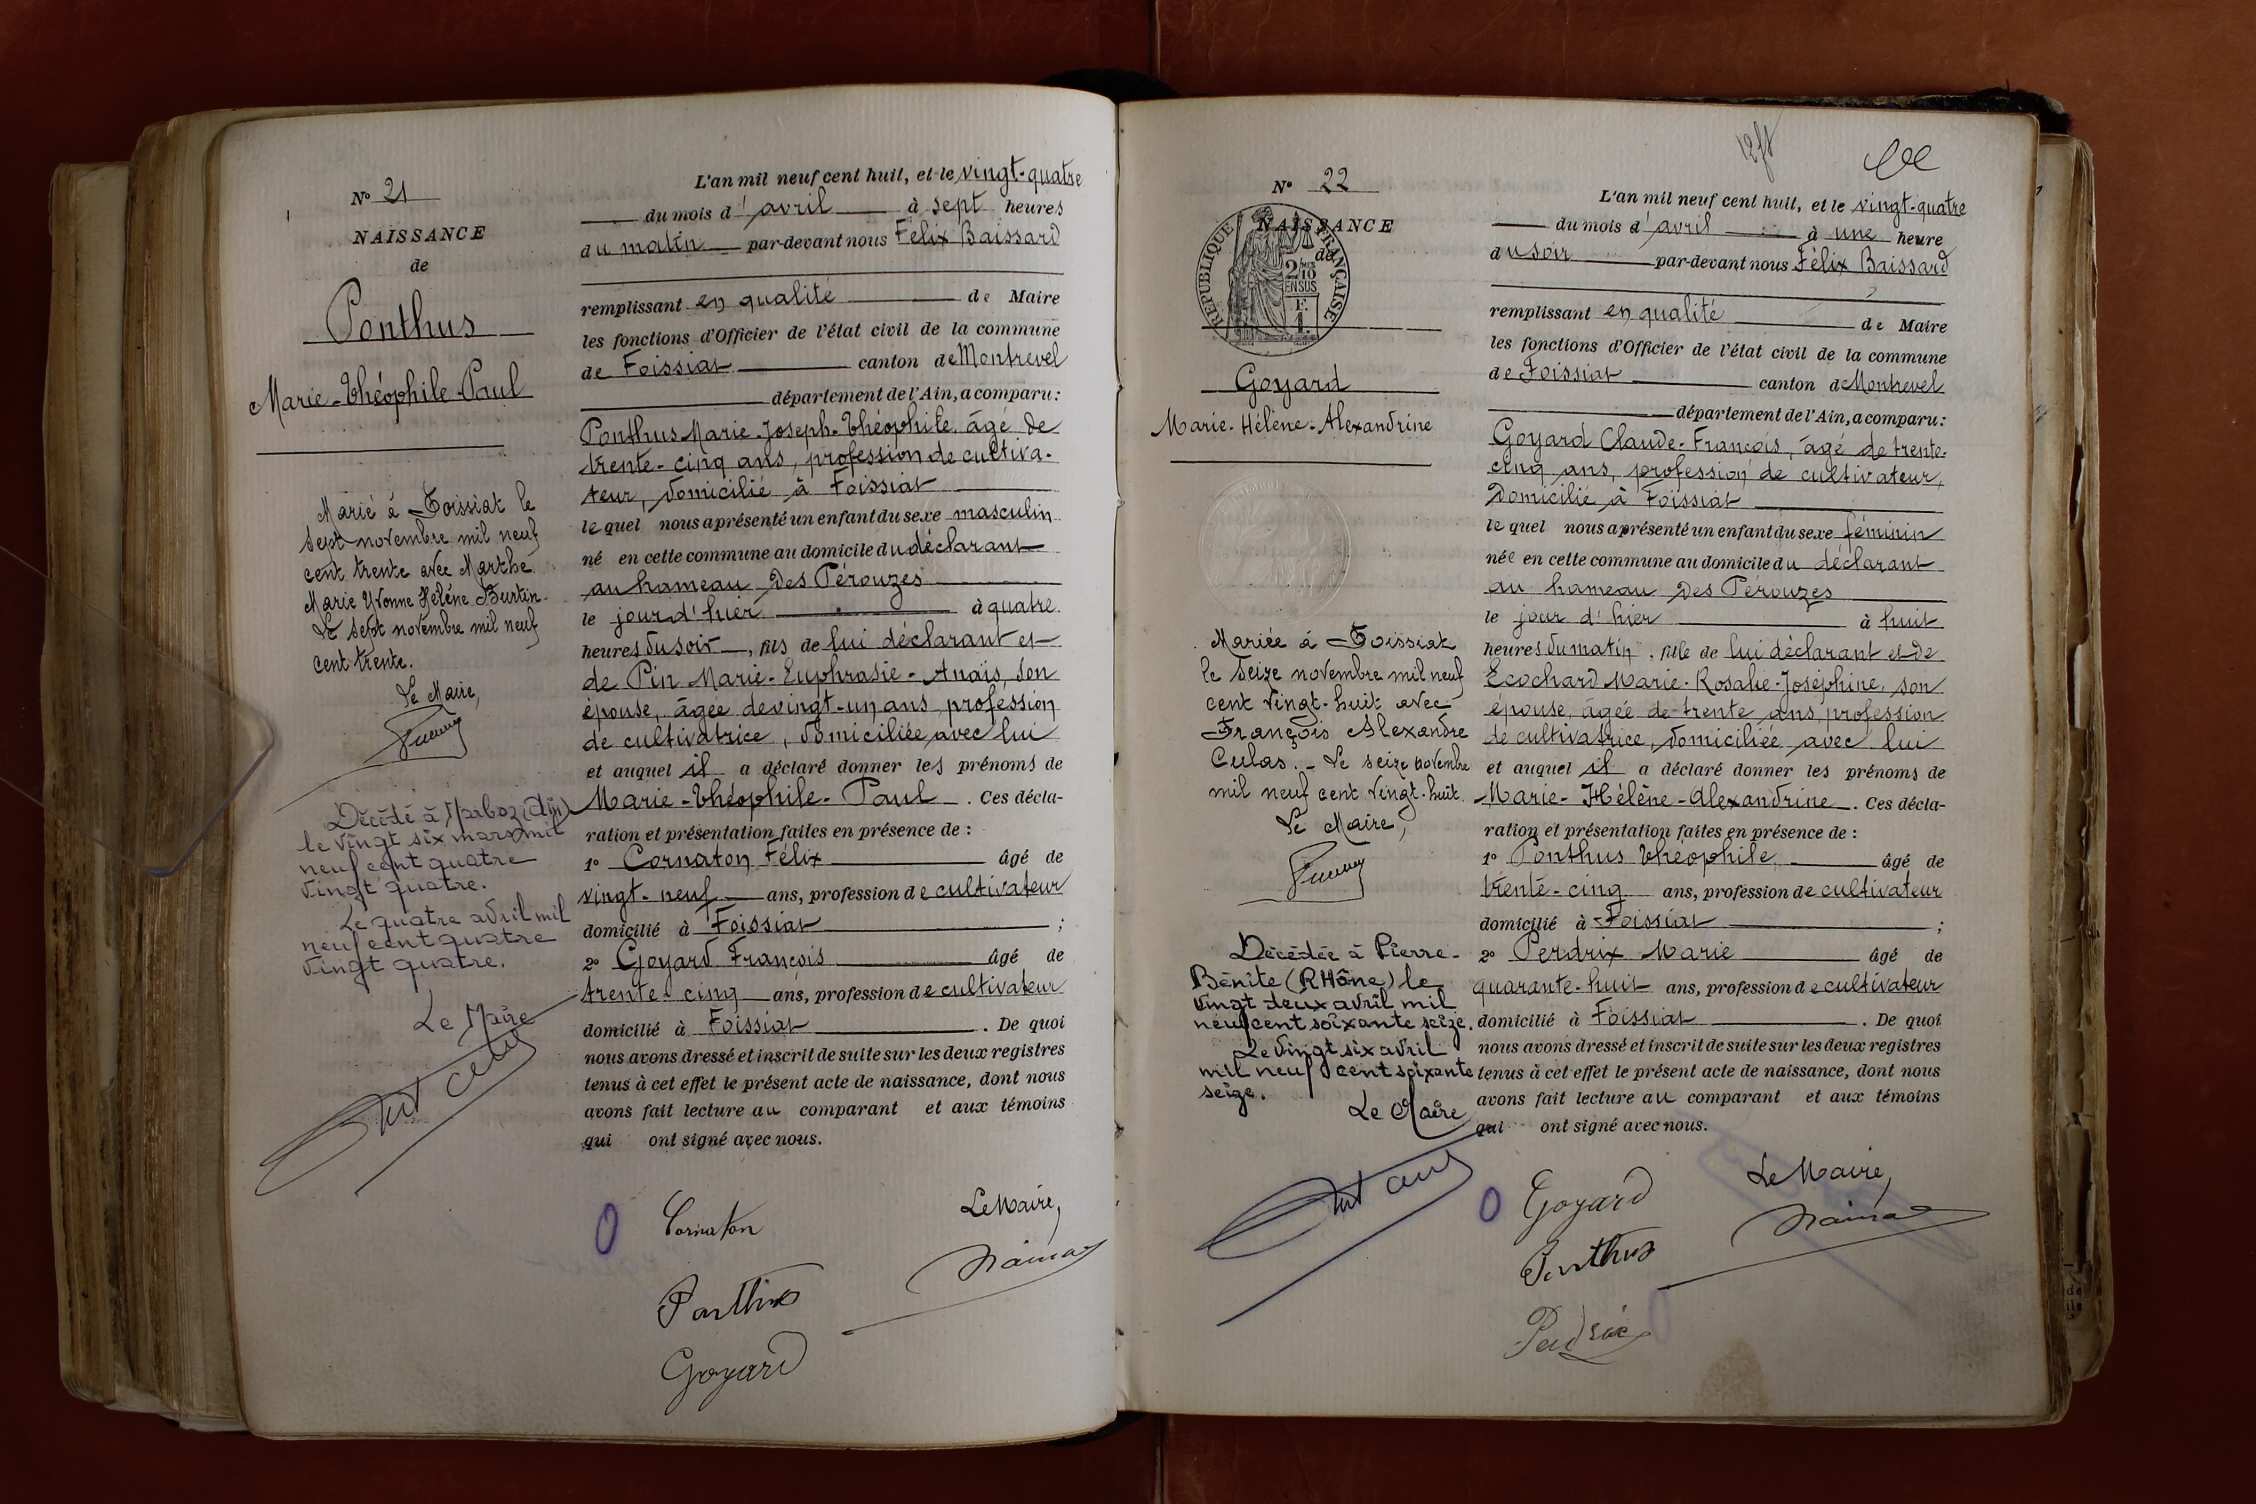 N° 21
NAISSANCE
de
Ponthus
Marie-Théophile-Paul
Marié à Foissiat le
sept novembre mil neuf
cent trente avec Marthe
Marie Yvonne Hélène Burtin.
Le sept novembre mil neuf
cent trente.
Le Maire,
Décédé à Marboz (Ain)
le vingt six mars mil
neuf cent quatre
vingt quatre.
Le quatre avril mil
neuf cent quatre
vingt quatre.
Le Maire
L'an mil neuf cent huit, et le vingt-quatre
du mois d'avril à sept heures
du matin par-devant nous Félix Baissard
remplissant en qualité de Maire
les fonctions d'Officier de l'état civil de la commune
de Foissiat canton de Montrevel
département de l'Ain, a comparu :
Ponthus Marie-Joseph-Théophile, âgé de
trente-cinq ans, profession de cultiva-
teur, domicilié à Foissiat
lequel nous a présenté un enfant du sexe masculin
né en cette commune au domicile du déclarant
au hameau des Pérouzes
le jour d'hier à quatre
heures du soir, fils de lui déclarant et
de Pin Marie-Euphrasie-Anaïs, son
épouse, âgée de vingt-un ans, profession
de cultivatrice, domiciliée avec lui
et auquel il a déclaré donner les prénoms de
Marie-Théophile-Paul. Ces décla-
ration et présentation faites en présence de :
1° Cornaton Félix âgé de
vingt-neuf ans, profession de cultivateur
domicilié à Foissiat ;
2° Goyard François âgé de
trente-cinq ans, profession de cultivateur
domicilié à Foissiat. De quoi
nous avons dressé et inscrit de suite sur les deux registres
tenus à cet effet le présent acte de naissance, dont nous
avons fait lecture au comparant et aux témoins
qui ont signé avec nous.
Cornaton
Le Maire,
Ponthus
Goyard
N° 22
NAISSANCE
de
REPUBLIQUE FRANÇAISE
2/10
EN SUS
Goyard
Marie-Hélène-Alexandrine
Mariée à Foissiat
le seize novembre mil neuf
cent vingt-huit avec
François Alexandre
Culas. - Le seize novembre
mil neuf cent vingt-huit.
Le Maire,
Décédée à Pierre-
Bénite (RHône) le
vingt deux avril mil
neuf cent soixante seize.
Le vingt six avril
mil neuf cent soixante
seize.
Le Maire
L'an mil neuf cent huit, et le vingt-quatre
du mois d'avril à une heure
du soir par-devant nous Félix Baissard
remplissant en qualité de Maire
les fonctions d'Officier de l'état civil de la commune
de Foissiat canton de Montrevel
département de l'Ain, a comparu :
Goyard Claude-François, âgé de trente-
cinq ans, profession de cultivateur,
domicilié à Foissiat
lequel nous a présenté un enfant du sexe féminin
née en cette commune au domicile du déclarant
au hameau des Pérouzes
le jour d'hier à huit
heures du matin, fille de lui déclarant et de
Ecochard Marie-Rosalie-Joséphine, son
épouse, âgée de trente ans, profession
de cultivatrice, domiciliée avec lui
et auquel il a déclaré donner les prénoms de
Marie-Hélène-Alexandrine. Ces décla-
ration et présentation faites en présence de :
1° Ponthus Théophile âgé de
trente-cinq ans, profession de cultivateur
domicilié à Foissiat ;
2° Perdrix Marie âgé de
quarante-huit ans, profession de cultivateur
domicilié à Foissiat. De quoi
nous avons dressé et inscrit de suite sur les deux registres
tenus à cet effet le présent acte de naissance, dont nous
avons fait lecture au comparant et aux témoins
qui ont signé avec nous.
Goyard
Le Maire,
Ponthus
Perdrix